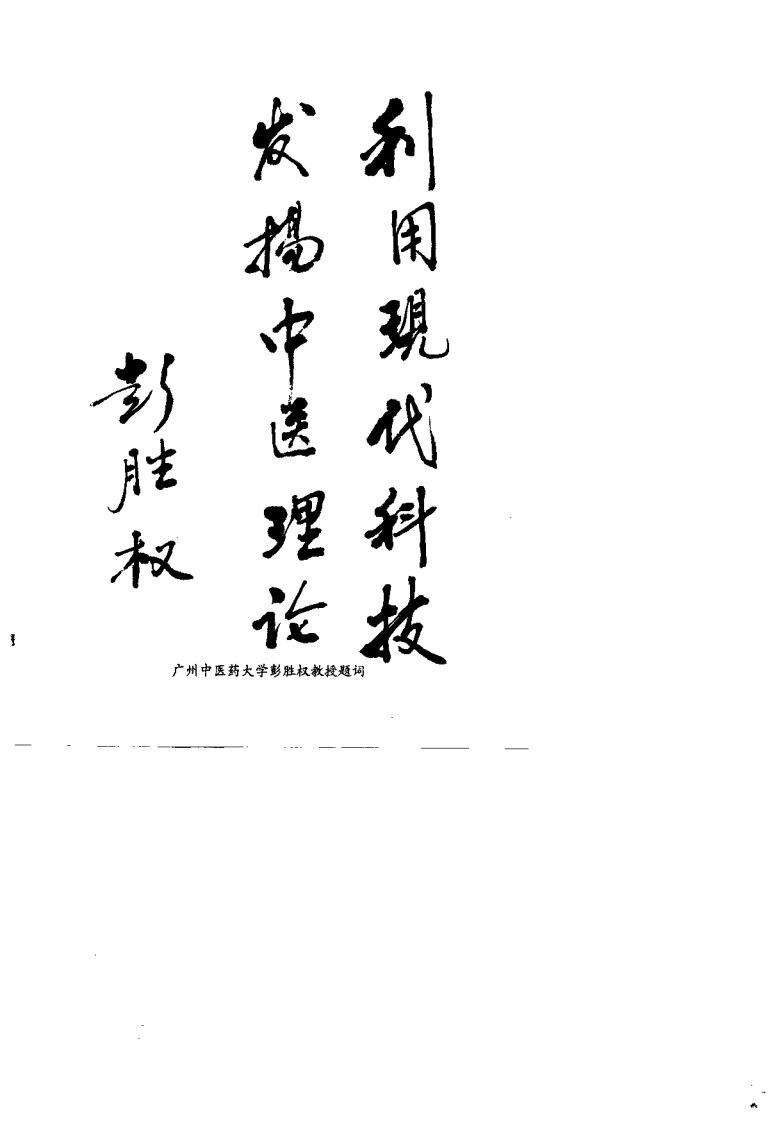 利用現代科技
发揚中医理论
彭胜权
广州中医药大学彭胜权教授题词